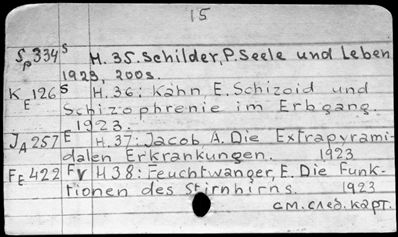 15
Sp 334 S H. 35. Schilder, P. Seele und Leben
1923, 200s.
KE 126 S H. 36: Kahn E. Schizoid und
Schizophrenie im Erbgang.
1923.
JA 257 E H. 37: Jacob A. Die Extrapyrami-
dalen Erkrankungen. 1923
FE 422 Fy H 38: Feuchtwanger, E. Die Funk-
tionen des Stirnhirns. 1923
см. след. карт.